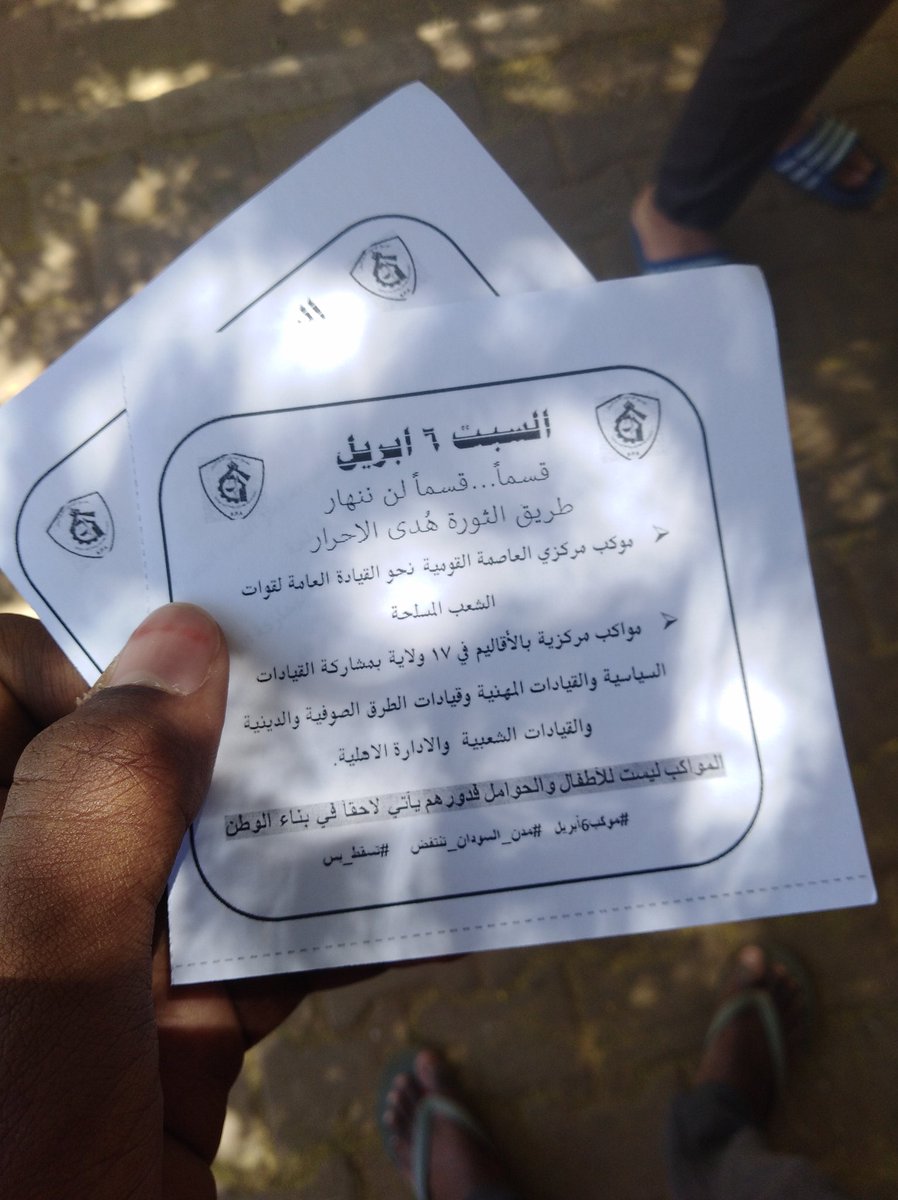 السبت ٦ ابريل
قسماً...قسماً لن ننهار
طريق الثورة هُدى الاحرار
موكب مركزي العاصمة القومية نحو القيادة العامة لقوات
الشعب المسلحة
مواكب مركزية بالأقاليم في ١٧ ولاية بمشاركة القيادات
السياسية والقيادات المهنية وقيادات الطرق الصوفية والدينية
والقيادات الشعبية والادارة الاهلية.
المواكب ليست للأطفال والحوامل فدورهم يأتي لاحقاً في بناء الوطن
#موكب6أبريل #مدن_السودان_تنتفض #تسقط_بس